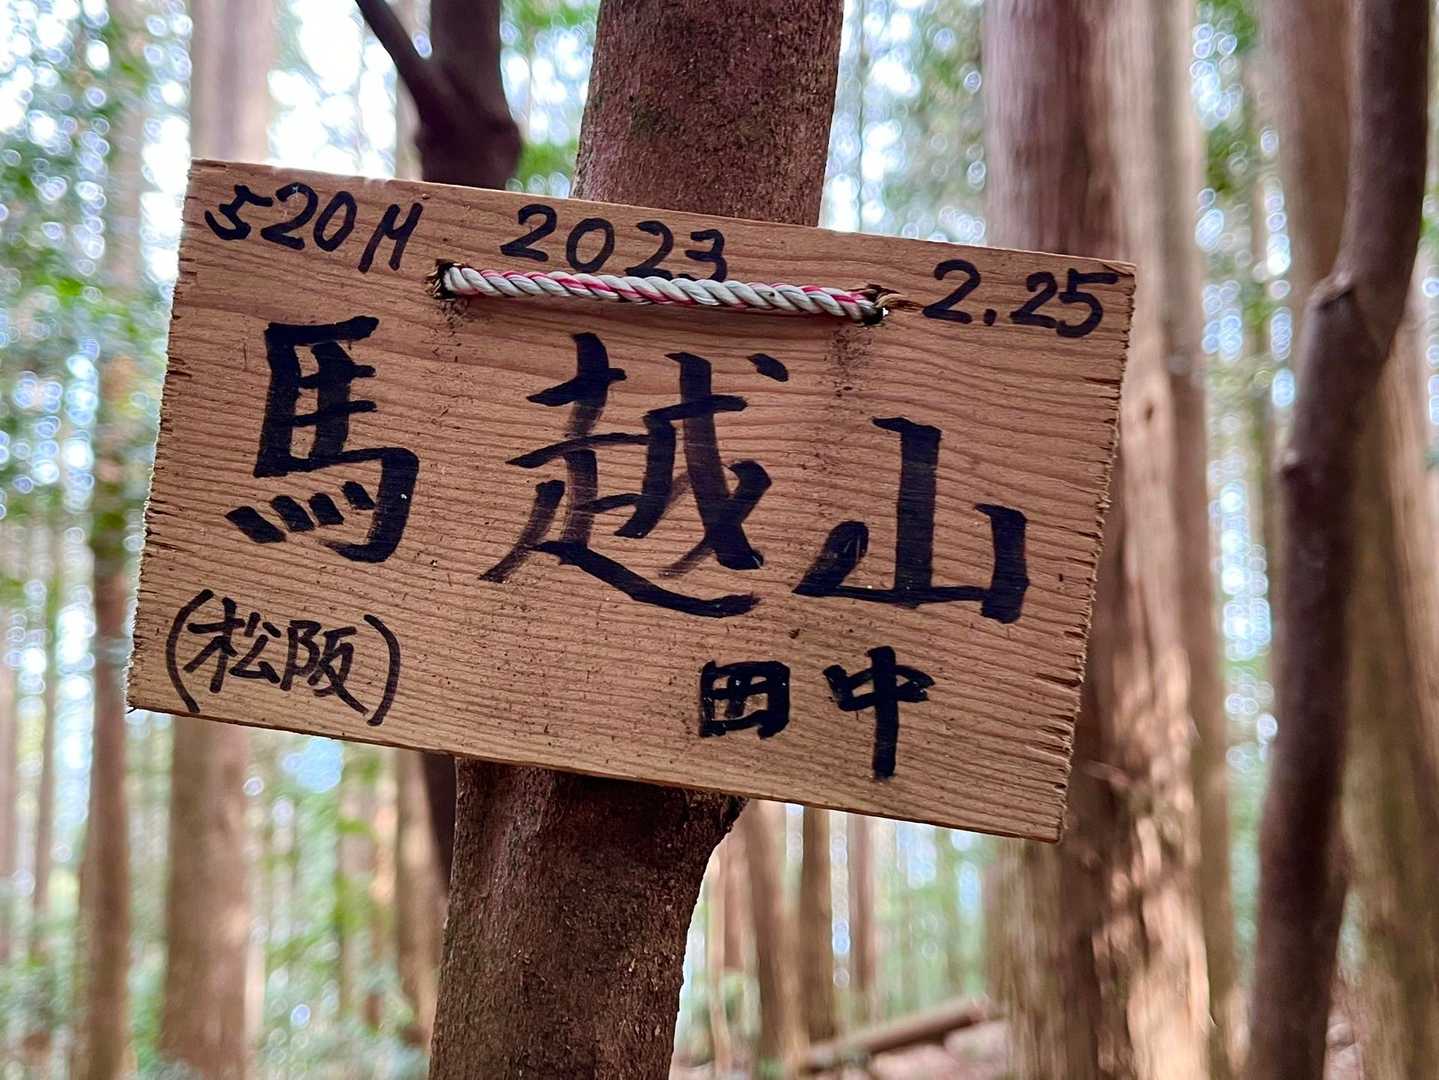 520M 2023 2.25
馬越山
(松阪) 田中